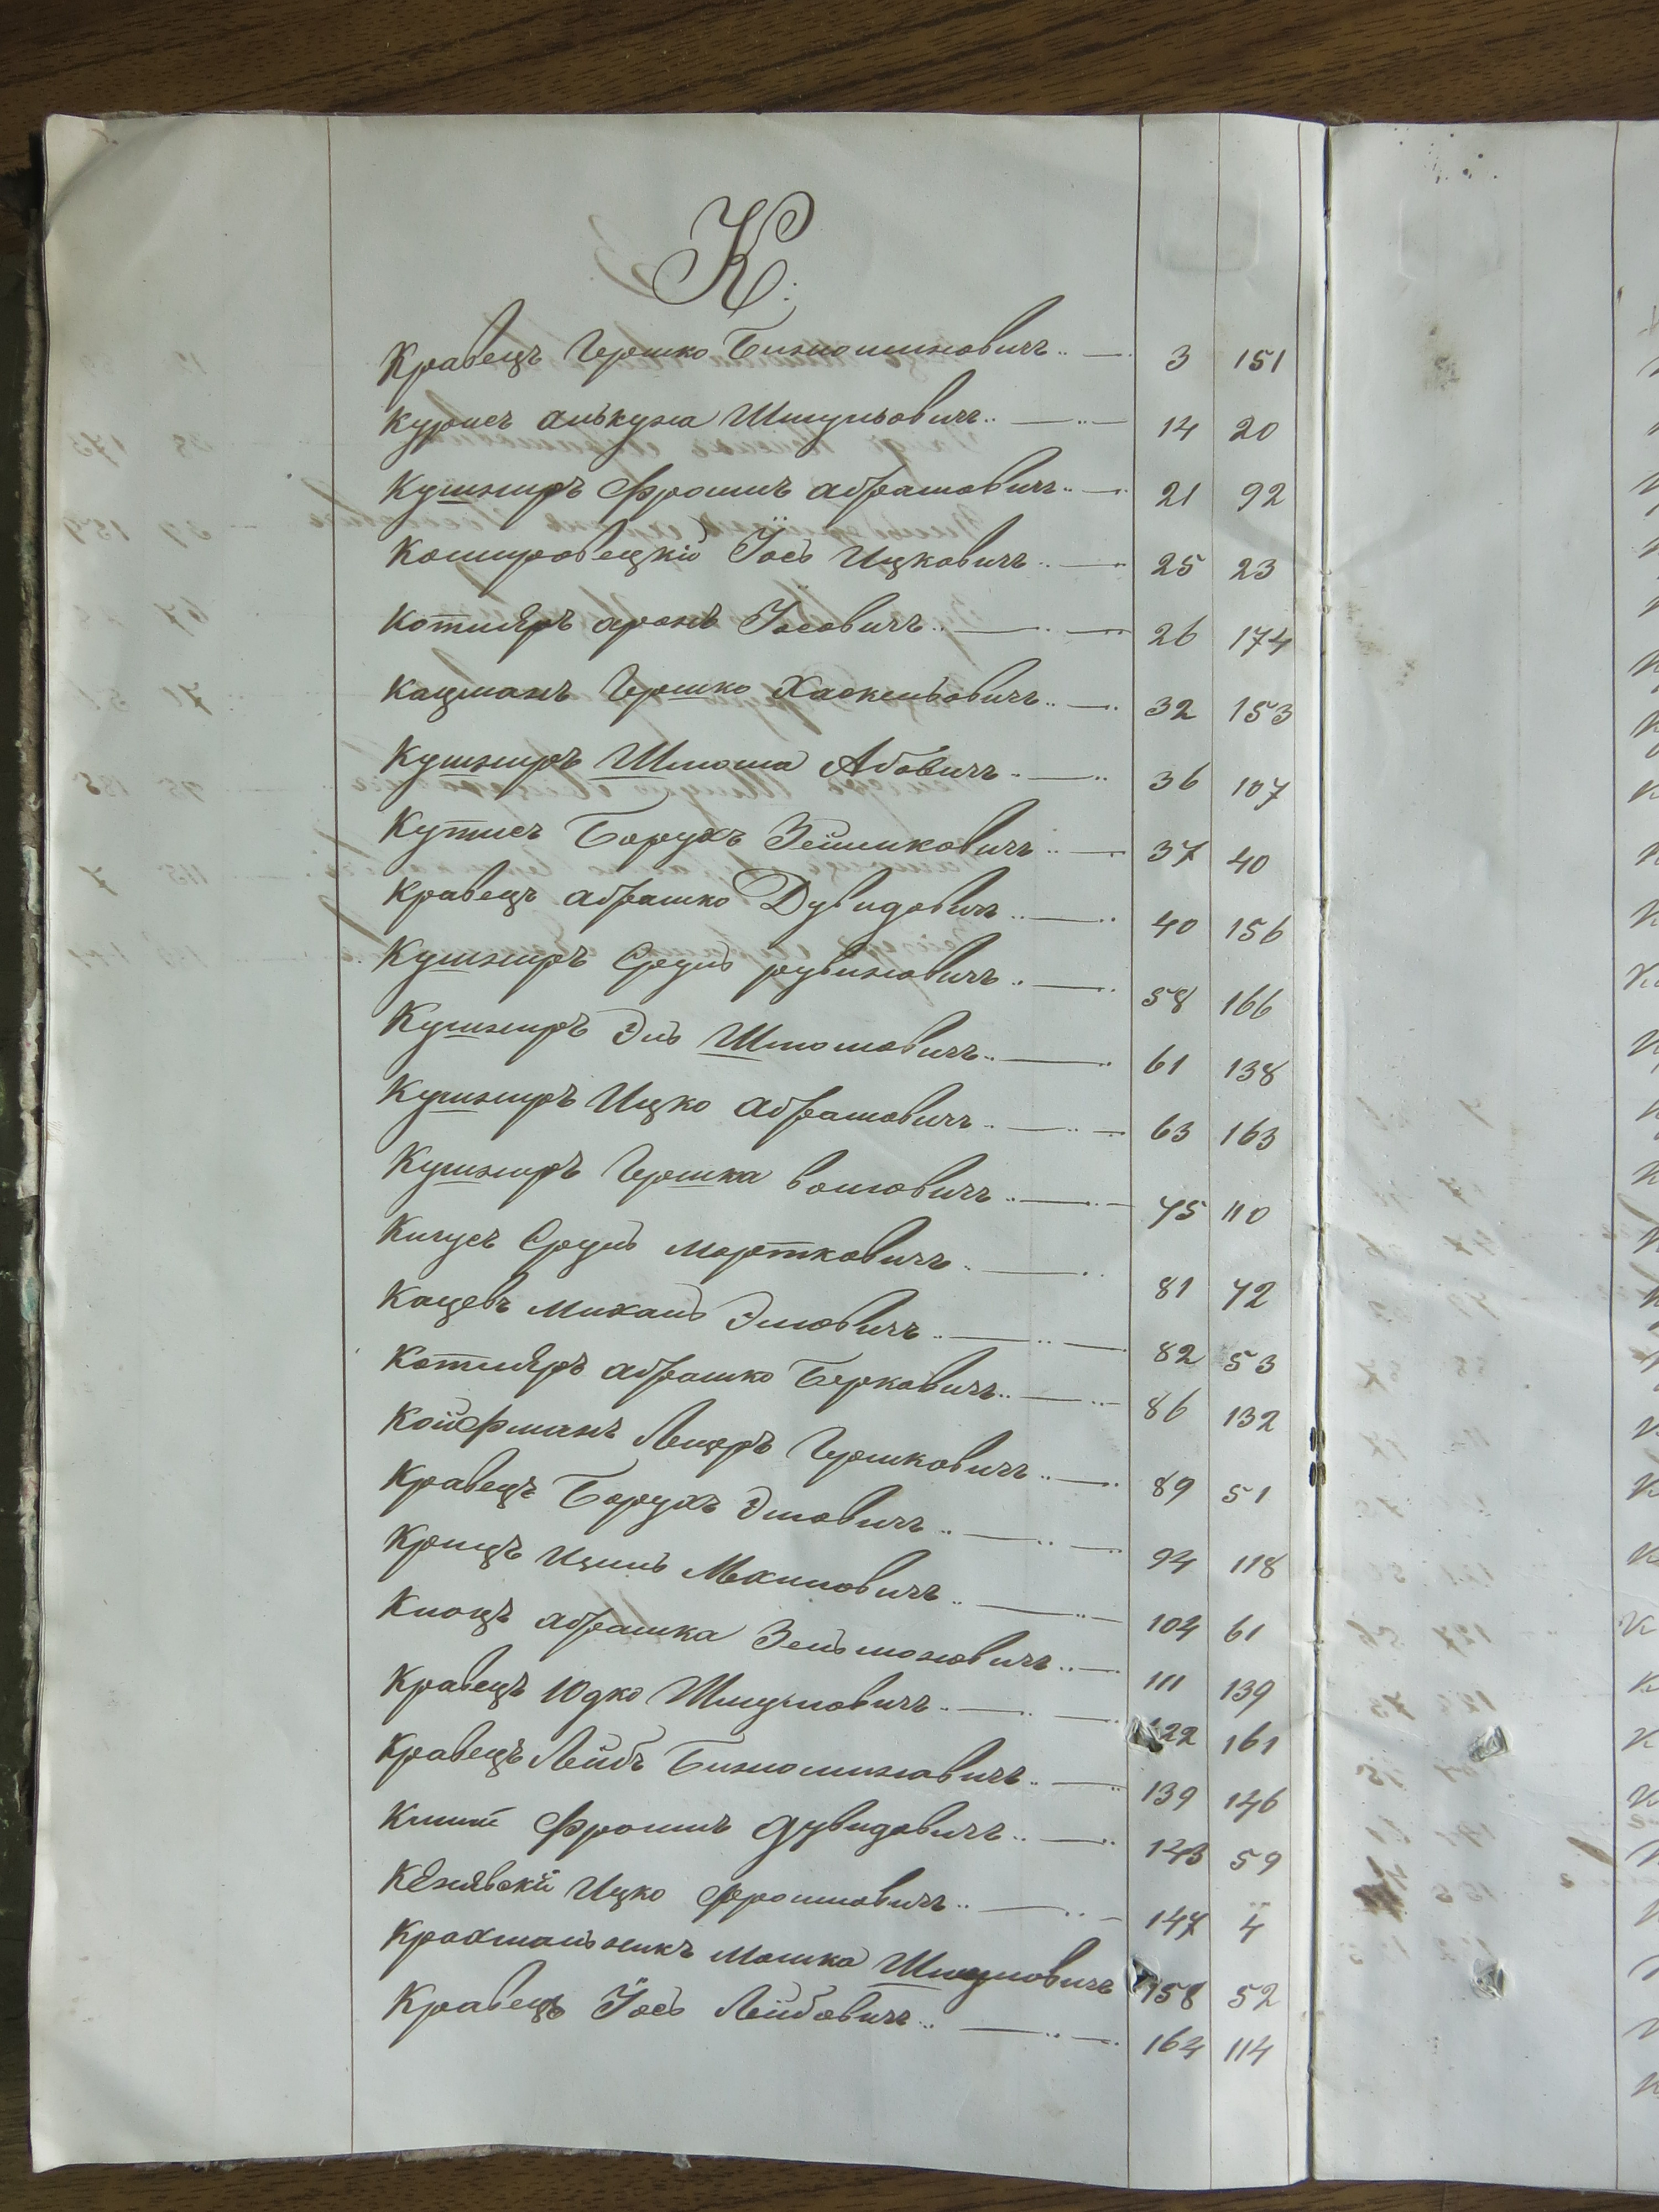 К.
Кравецъ Гершко Бинюминовичъ 3 151
Курисъ Анькуна Шмульовичъ 14 20
Кушниръ Фроимъ Абрамовичъ 21 92
Коммровецкій Іось Ицковичъ 25 23
Котляръ Аронъ Іосовичъ 26 174
Кацманъ Гершко Хаскельовичъ 32 153
Кушниръ Шлиома Абовичъ 36 107
Кутисъ Борухъ Зейликовичъ 37 40
Кравецъ Абрашко Дувидовичъ 40 156
Кушниръ Сруль рувиновичъ 58 166
Кушниръ Эль Шлиомовичъ 61 138
Кушниръ Ицко Абрамовичъ 63 163
Кушниръ Гершка волиовичъ 75 110
Кигусъ Сруль мортковичъ 81 72
Кацевъ Михаль Элиовичъ 82 53
Котляръ Абрашко Берковичъ 86 132
Койфманъ Лейзеръ Гершковичъ 89 51
Кравецъ Борухъ Элиовичъ 94 118
Крицъ Ицикъ Мехиловичъ 104 61
Клоцъ Абрашка Зельмоновичъ 111 139
Кравецъ Юдко Шмулиовичъ 122 161
Кравецъ Лейбъ Бинюминовичъ 139 146
Фроимъ дувидовичъ 143 59
Ицко фроимовичъ 147 4
Крахмальникъ Мошка Шмулиовичъ 158 52
Кравецъ Іось Лейбовичъ 164 114